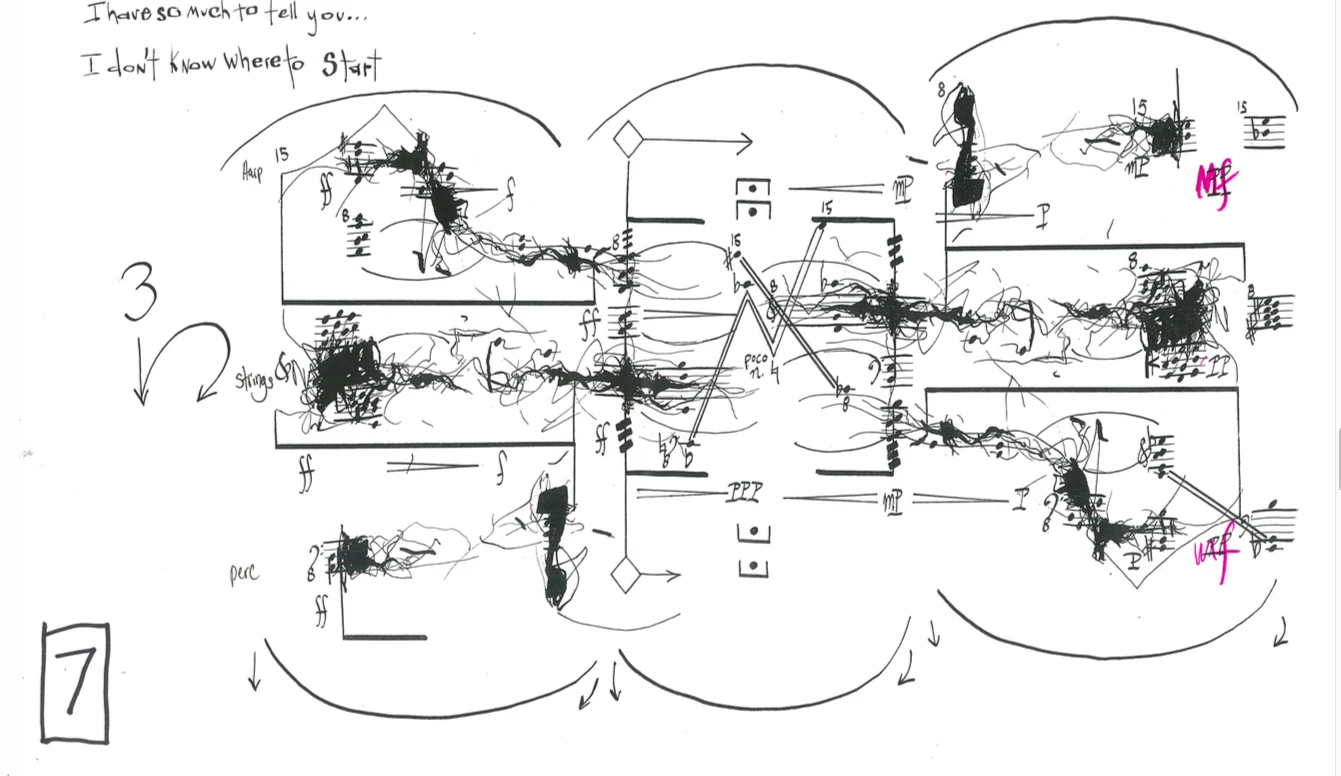 I have so much to tell you...
I don't know where to Start
8
15
15
Harp 15
ff
f
mP
mP
Mf
P
8
8
15
15
8
3
ff
8
8
strings
poco
n.
PP
8
ff
ff
f
PPP
mP
P
8
perc
8
P
mf
ff
7